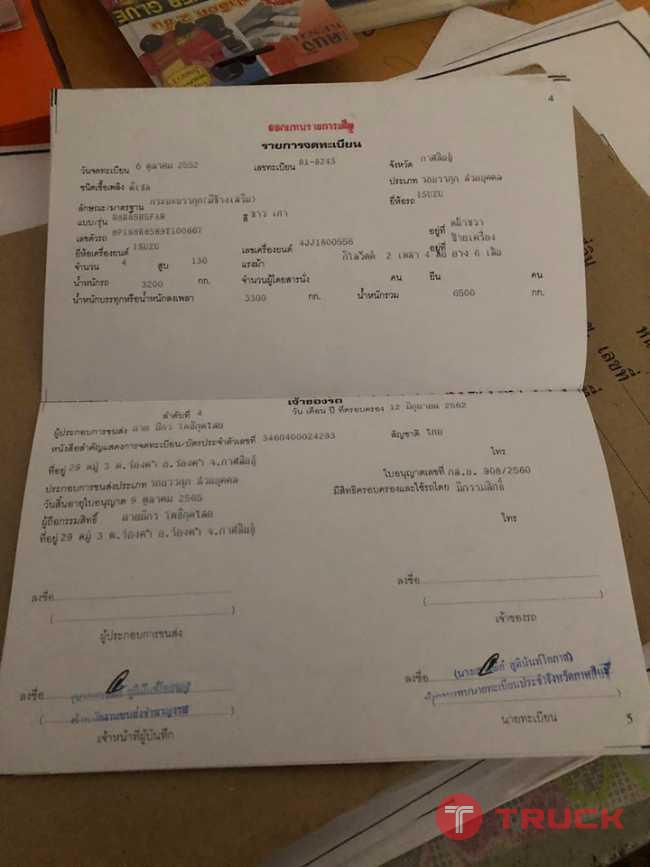 ER GLUE
4
ออกแทนรายการเดิม
รายการจดทะเบียน
วันจดทะเบียน 6 ตุลาคม 2552 เลขทะเบียน 81-8243 จังหวัด กาฬสินธุ์
ชนิดเชื้อเพลิง ดีเซล ประเภท รถบรรทุก ส่วนบุคคล
ลักษณะ/มาตรฐาน กระบะบรรทุก(มีข้างเสริม) ยี่ห้อรถ ISUZU
แบบ/รุ่น สี ขาว เทา
เลขตัวรถ อยู่ที่ คัสซีขวา
ยี่ห้อเครื่องยนต์ ISUZU เลขเครื่องยนต์ 4JJ1800556 อยู่ที่ ซ้ายเครื่อง
จำนวน 4 สูบ 130 แรงม้า กิโลวัตต์ 2 เพลา 4 ล้อ ยาง 6 เส้น
น้ำหนักรถ 3200 กก. จำนวนผู้โดยสารนั่ง คน ยืน คน
น้ำหนักบรรทุกหรือน้ำหนักลงเพลา 3300 กก. น้ำหนักรวม 6500 กก.
เจ้าของรถ
ลำดับที่ 4 วัน เดือน ปี ที่ครอบครอง 12 มิถุนายน 2562
ผู้ประกอบการขนส่ง นาย
หนังสือสำคัญแสดงการจดทะเบียน/บัตรประจำตัวเลขที่ 3460400024293 สัญชาติ ไทย
ที่อยู่ 29 หมู่ 3 ต.ร่องคำ อ.ร่องคำ จ.กาฬสินธุ์ โทร
ประกอบการขนส่งประเภท รถบรรทุก ส่วนบุคคล ใบอนุญาตเลขที่ กส.อ. 908/2560
วันสิ้นอายุใบอนุญาต 9 ตุลาคม 2565 มีสิทธิครอบครองและใช้รถโดย มีกรรมสิทธิ์
ผู้ถือกรรมสิทธิ์
ที่อยู่ 29 หมู่ 3 ต.ร่องคำ อ.ร่องคำ จ.กาฬสินธุ์ โทร
ลงชื่อ ลงชื่อ
( ) ( )
ผู้ประกอบการขนส่ง เจ้าของรถ
ลงชื่อ ลงชื่อ
เจ้าหน้าที่ผู้บันทึก นายทะเบียน
5
เลขที่
TRUCK